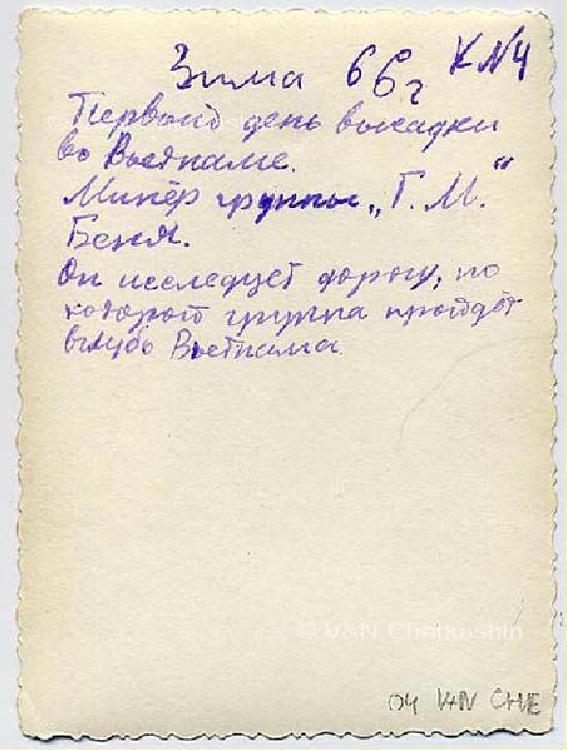 Зима 66г К №4
Первый день высадки
во Вьетнаме.
Минёр группы „Г.М.“
Беня.
Он исследует дорогу, по
которой группа пройдёт
вглубь Вьетнама.
© V&N Chatkashin
04 V&N CHE